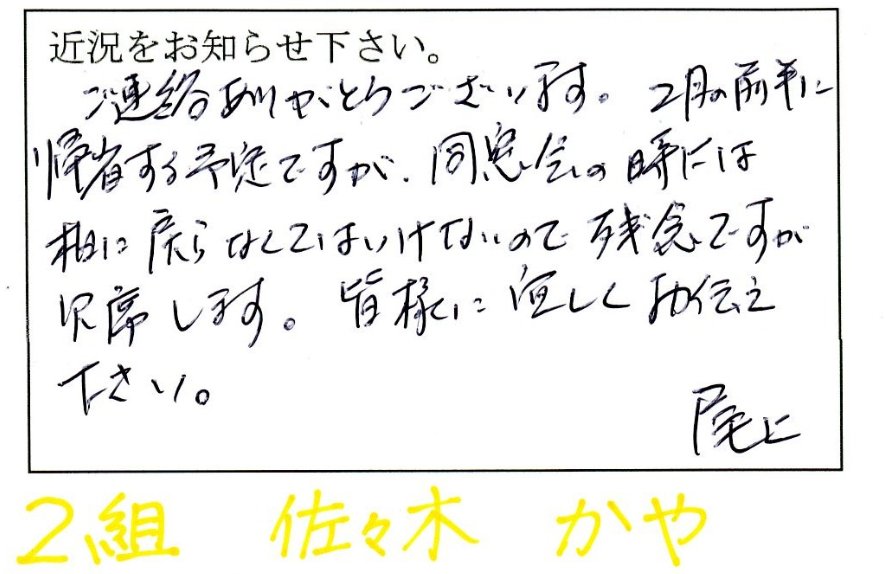 近況をお知らせ下さい。
ご連絡ありがとうございます。2月の前半に
帰省する予定ですが、同窓会の時には
戻らなくてはいけないので残念ですが
欠席します。皆様に宜しくお伝え
下さい。
2組 佐々木 かや